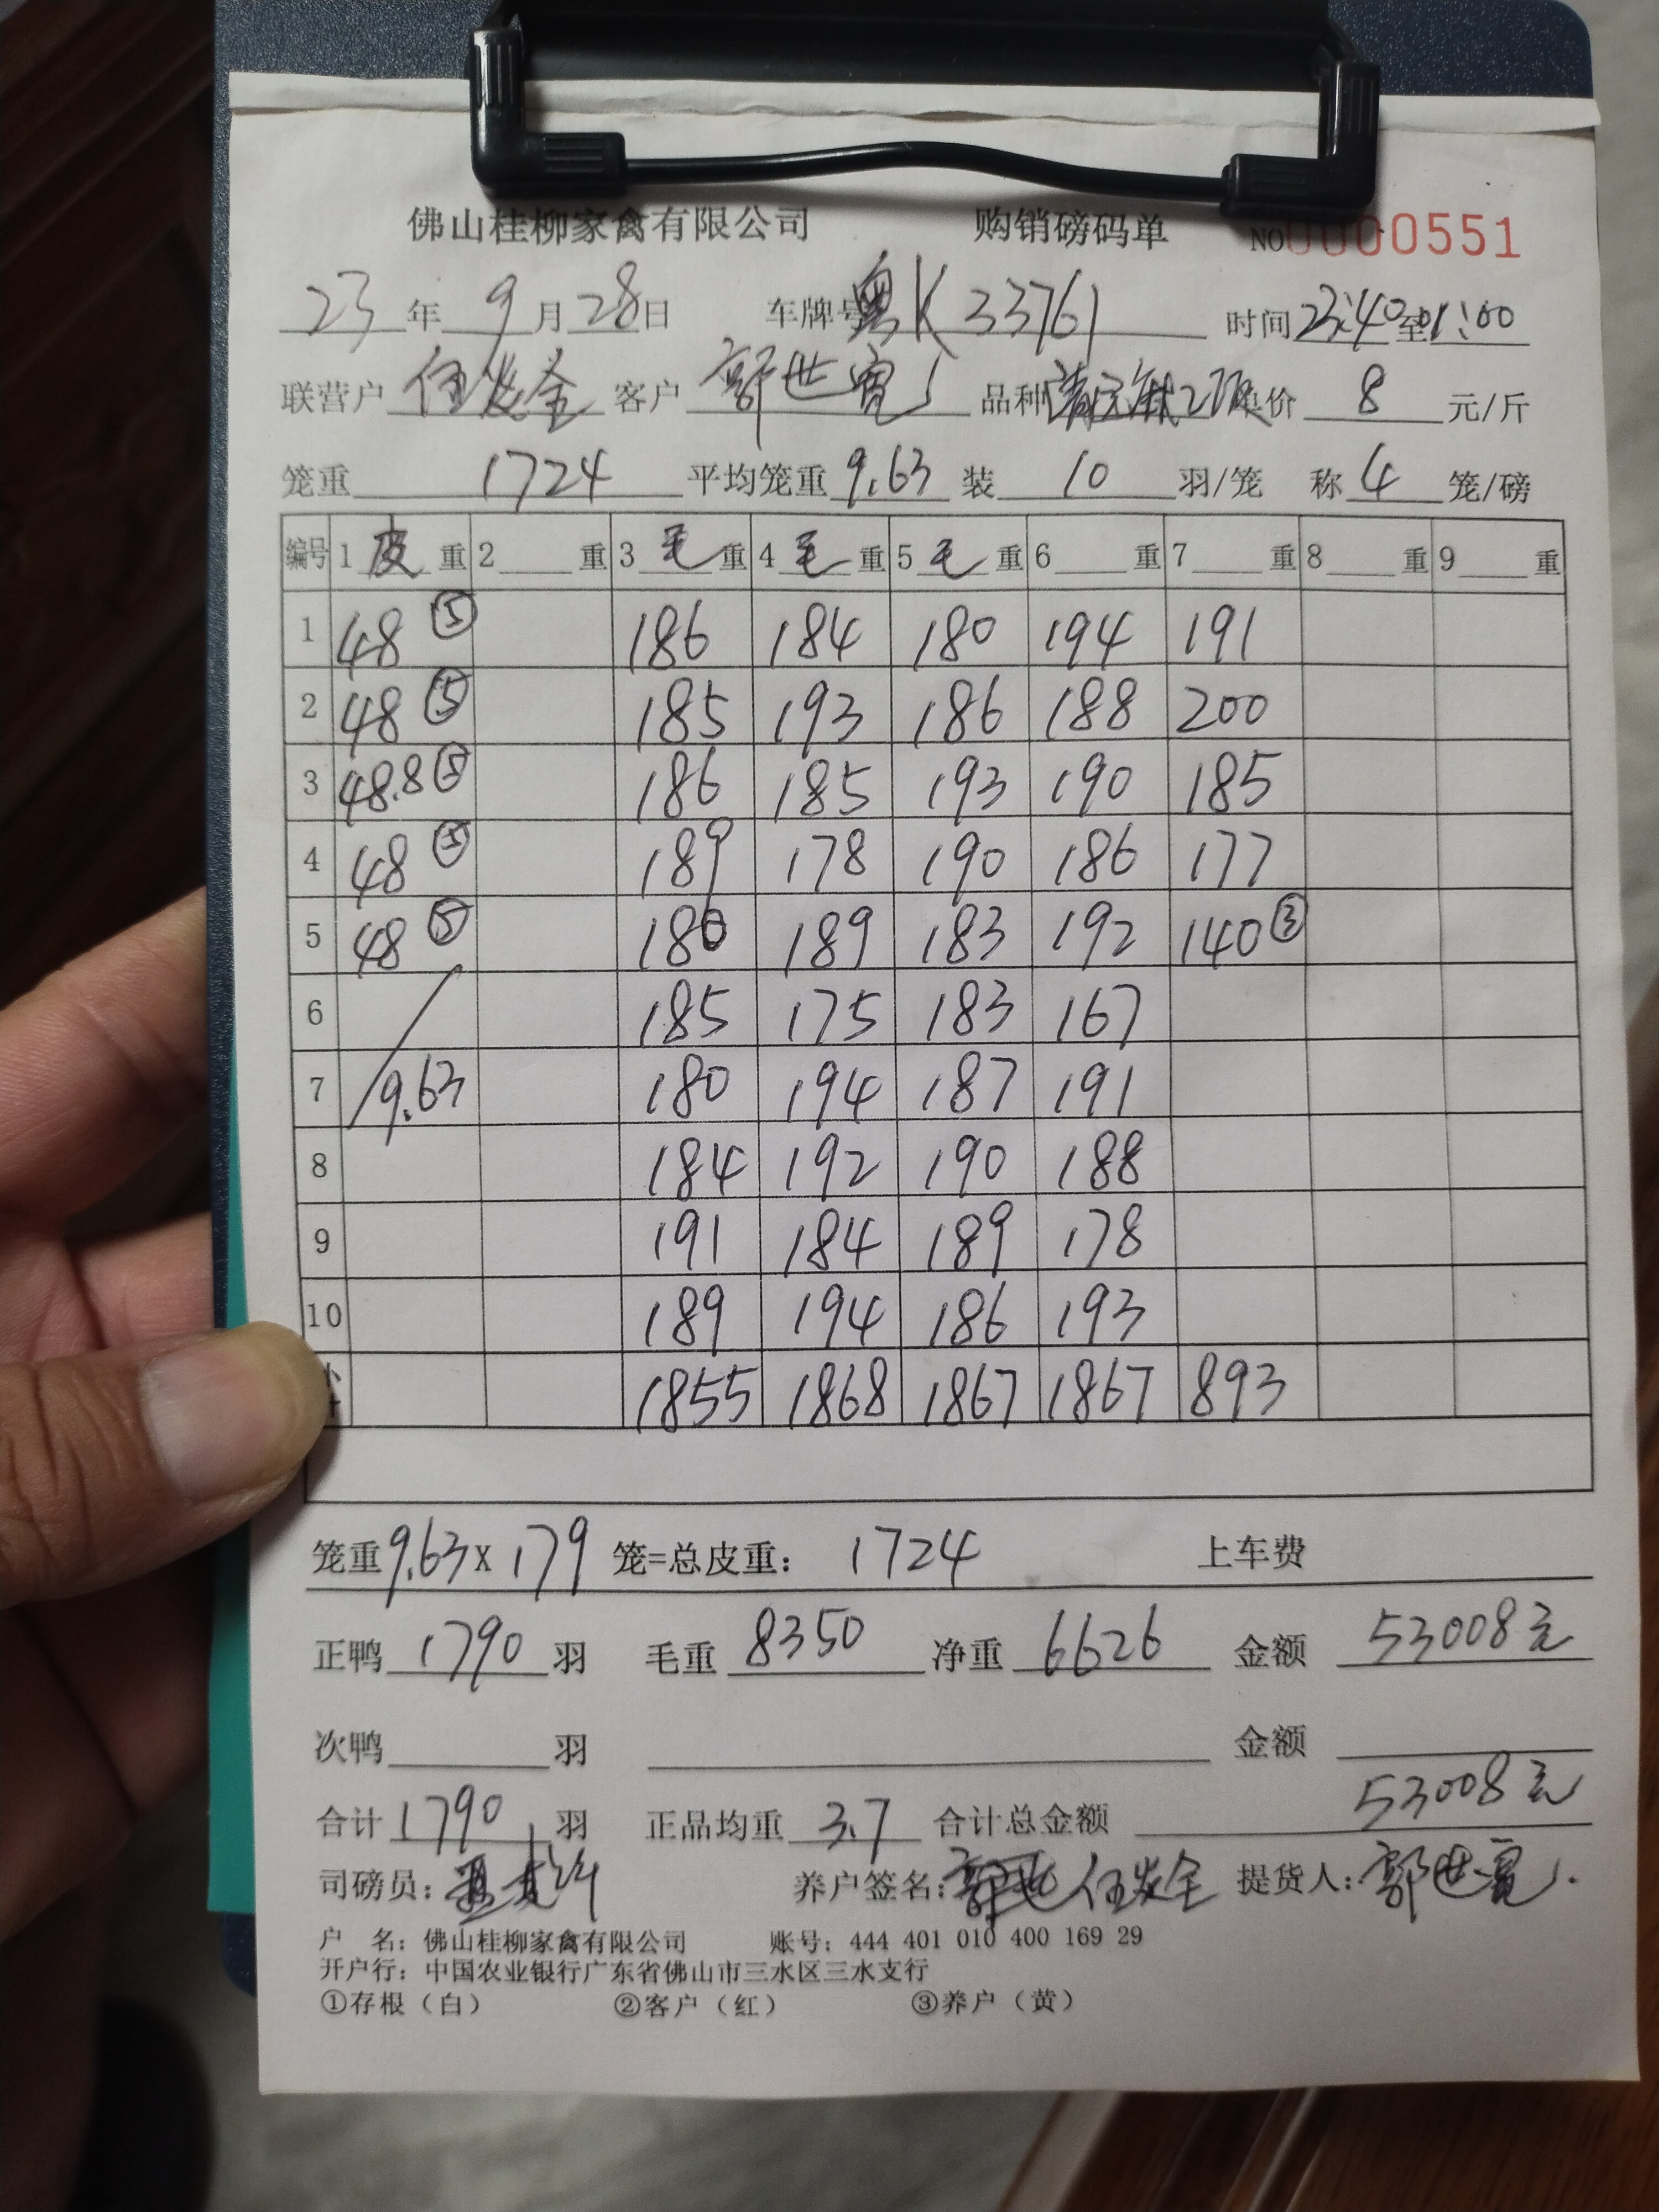 佛山桂柳家禽有限公司 购销磅码单 NO0000551
23年9月28日 车牌号粤K33761 时间23:40至01:00
联营户 任炎金 客户 郭世宽 品种 单价 8 元/斤
笼重 1724 平均笼重 9.63 装 10 羽/笼 称 4 笼/磅
编号 1 皮 重 2 重 3 毛 重 4 毛 重 5 毛 重 6 重 7 重 8 重 9 重
1 48 ⑤ 186 184 180 194 191
2 48 ⑤ 185 193 186 188 200
3 48.8 ⑤ 186 185 193 190 185
4 48 ⑤ 189 178 190 186 177
5 48 ⑤ 180 189 183 192 140 ③
6 185 175 183 167
7 9.63 180 194 187 191
8 184 192 190 188
9 191 184 189 178
10 189 194 186 193
1855 1868 1867 1867 893
笼重 9.63 X 179 笼=总皮重： 1724 上车费
正鸭 1790 羽 毛重 8350 净重 6626 金额 53008元
次鸭 羽 金额
合计 1790 羽 正品均重 3.7 合计总金额 53008元
司磅员： 养户签名： 任炎金 提货人：郭世宽
户 名：佛山桂柳家禽有限公司 账号：444 401 010 400 169 29
开户行：中国农业银行广东省佛山市三水区三水支行
①存根（白） ②客户（红） ③养户（黄）